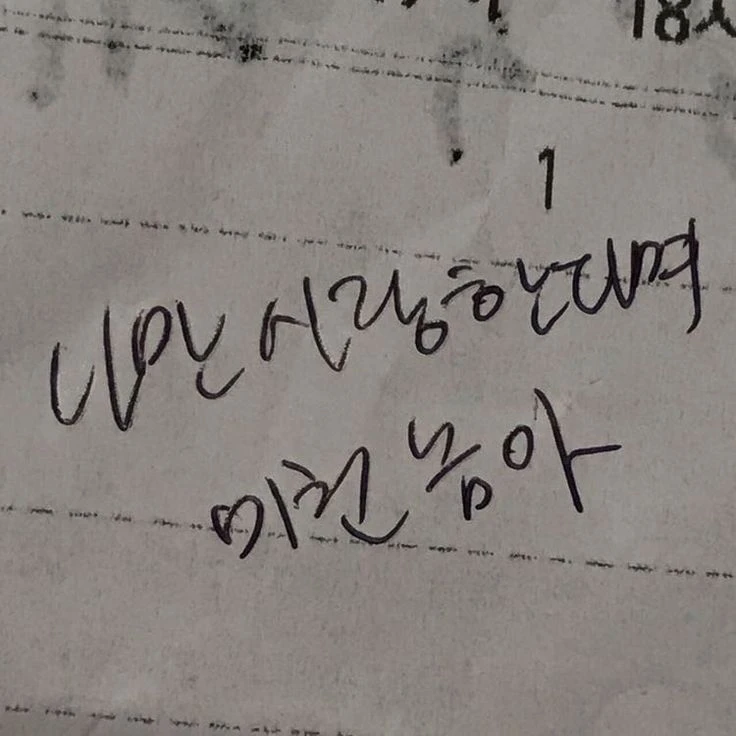 18시
1
나만 사랑한다며
미친 놈아